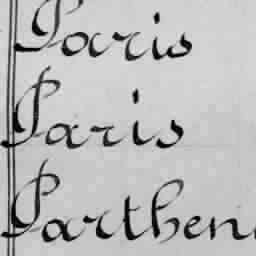 Paris
Paris
Parthen